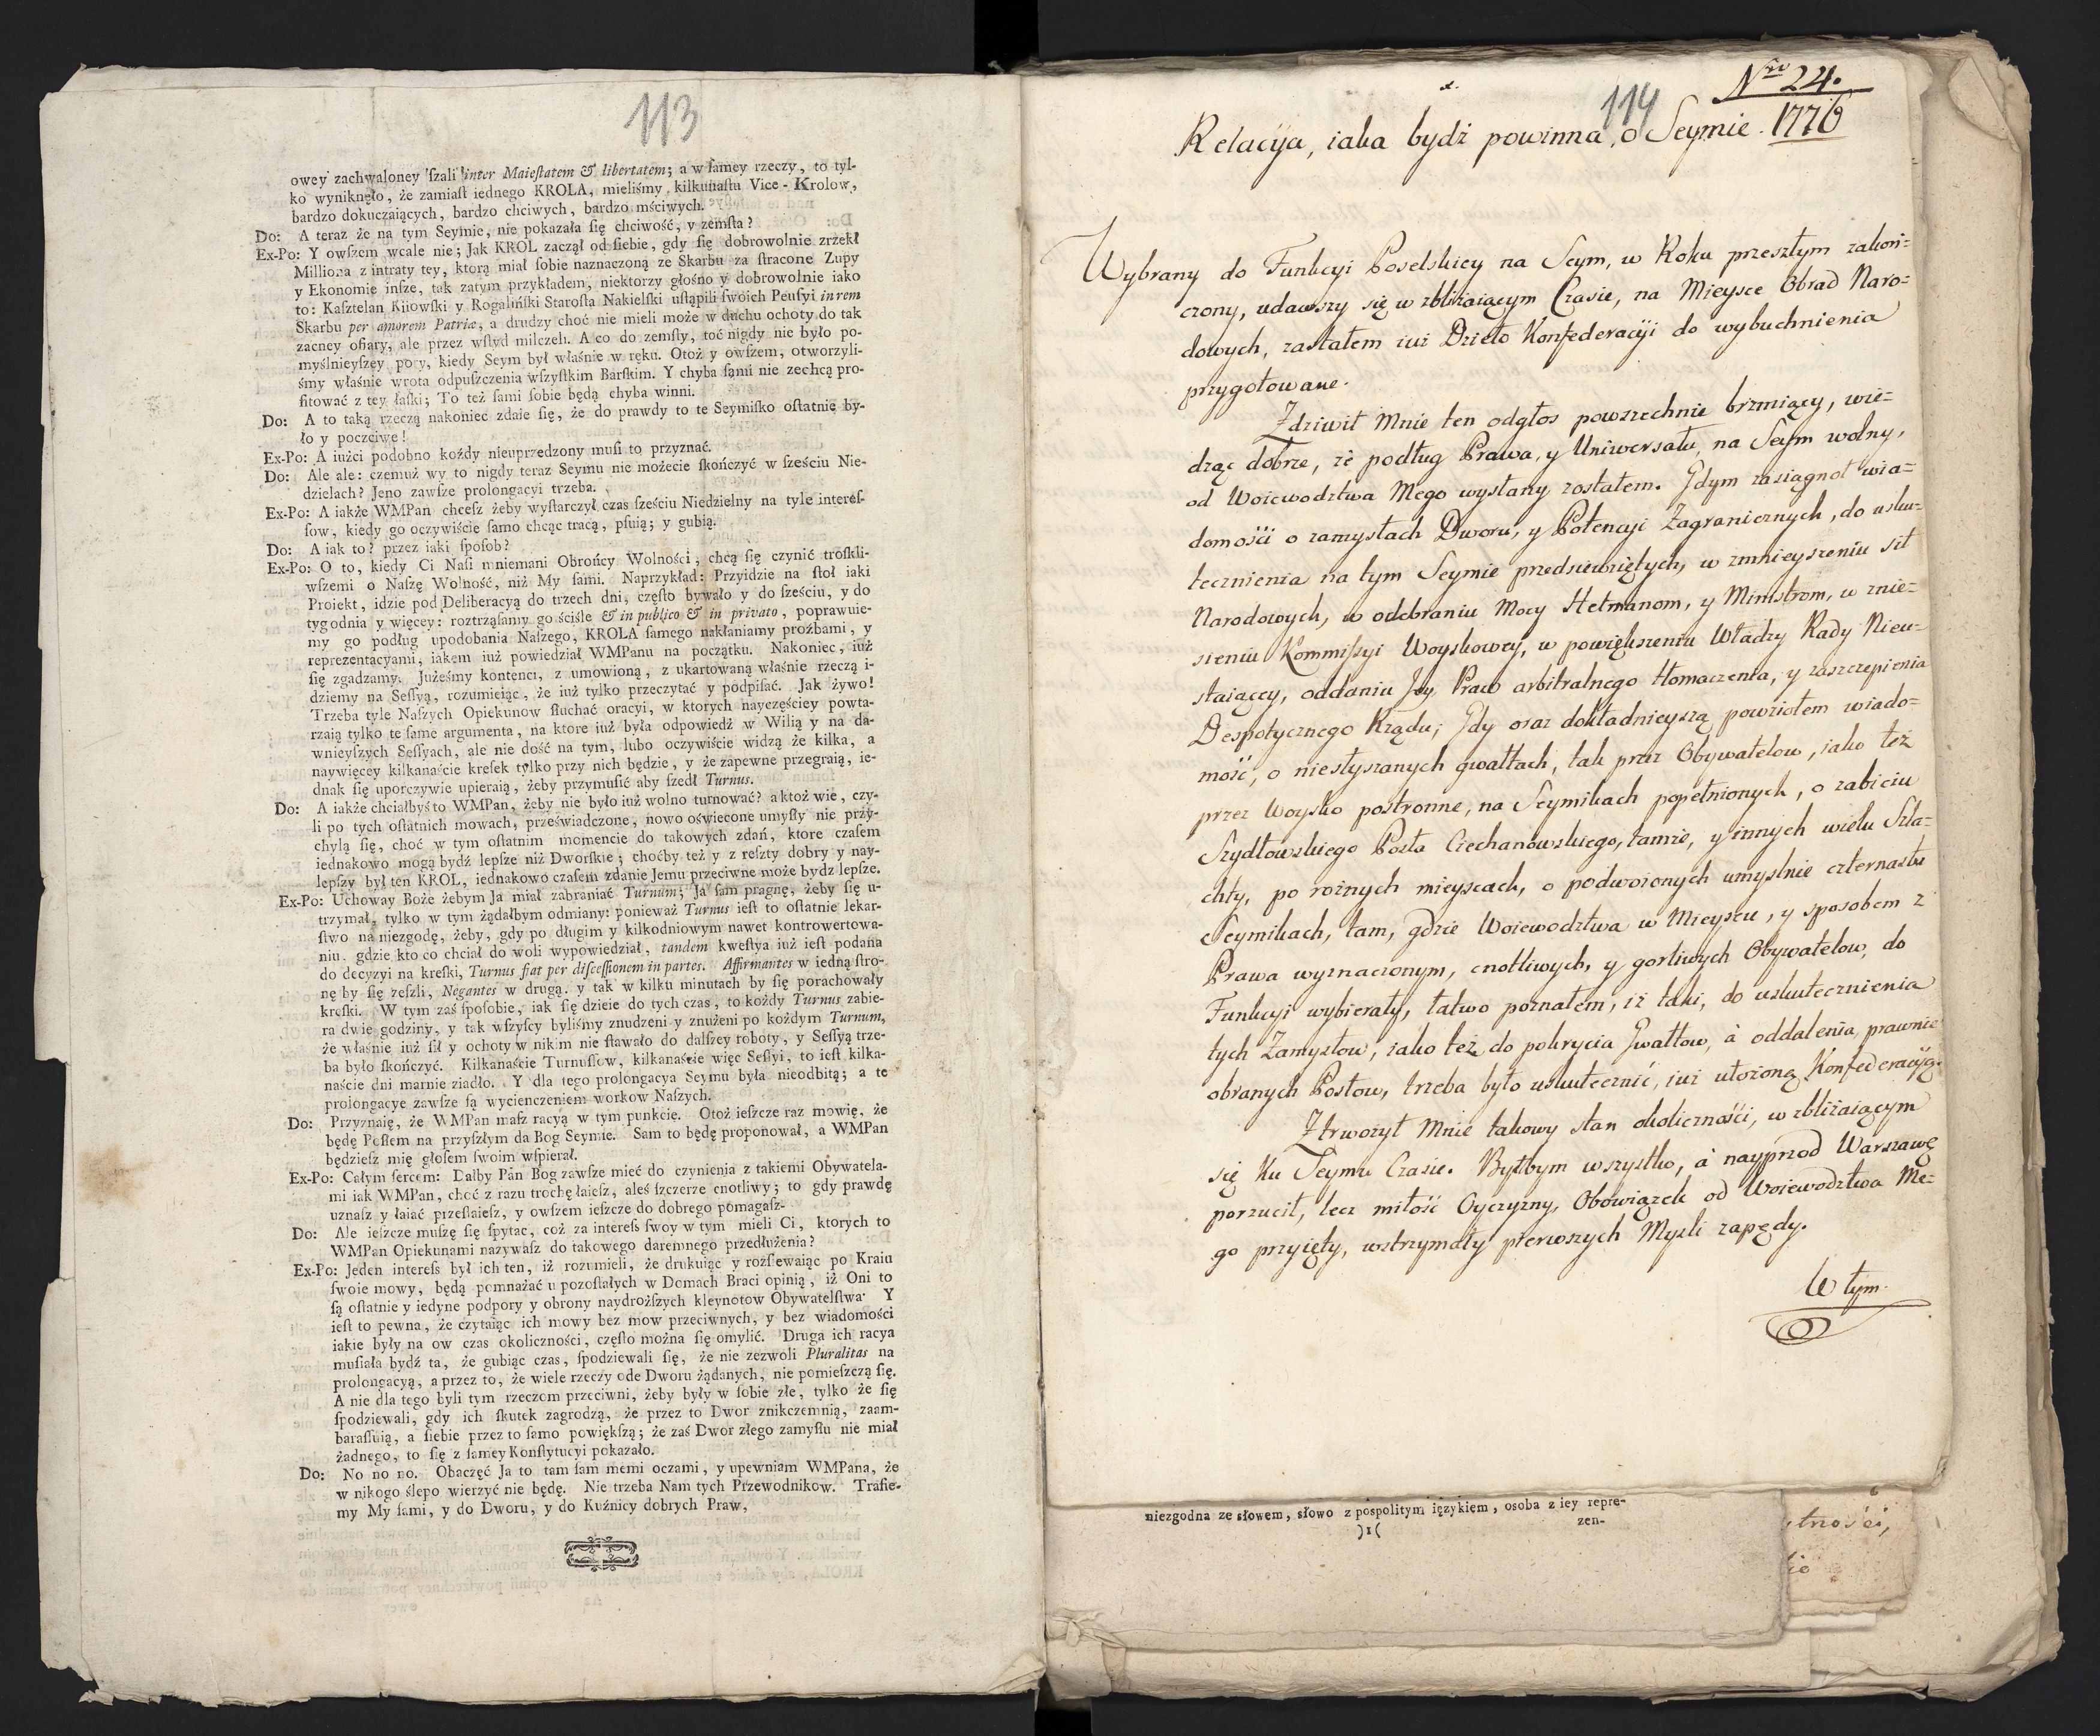 113
owey zachwaloney ſzali inter Maieſtatem & libertatem; a w ſamey rzeczy, to tyl-
ko wyniknęło, że zamiaſt iednego KROLA, mieliśmy kilkunaſtu Vice-Krolow,
bardzo dokuczaiących, bardzo chciwych, bardzo mściwych.
Do: A teraz że na tym Seymie, nie pokazała ſię chciwość, y zemſta?
Ex-Po: Y owſzem wcale nie; Jak KROL zaczął od ſiebie, gdy ſię dobrowolnie zrzekł
Milliona z intraty tey, ktorą miał ſobie naznaczoną ze Skarbu za ſtracone Zupy
y Ekonomie inſze, tak zatym przykładem, niektorzy głośno y dobrowolnie iako
to: Kaſztelan Kiiowſki y Rogaliński Staroſta Nakielſki uſtąpili ſwoich Penſyi in rem
Skarbu per amorem Patriæ, a drudzy choć nie mieli może w duchu ochoty do tak
zacney ofiary, ale przez wſtyd milczeli. A co do zemſty, toć nigdy nie było po-
myślnieyſzey pory, kiedy Seym był właśnie w ręku. Otoż y owſzem, otworzyli-
śmy właśnie wrota odpuſzczenia wſzyſtkim Barſkim. Y chyba ſami nie zechcą pro-
fitować z tey łaſki; To też ſami ſobie będą chyba winni.
Do: A to taką rzeczą nakoniec zdaie ſię, że do prawdy to te Seymiſko oſtatnie by-
ło y poczciwe!
Ex-Po: A iużci podobno każdy nieuprzedzony muſi to przyznać.
Do: Ale ale: czemuż wy to nigdy teraz Seymu nie możecie ſkończyć w ſześciu Nie-
dzielach? Jeno zawſze prolongacyi trzeba.
Ex-Po: A iakże WMPan chceſz żeby wyſtarczył czas ſześciu Niedzielny na tyle intereſ-
ſow, kiedy go oczywiście ſamo chcąc tracą, pſuią; y gubią.
Do: A iak to? przez iaki ſpoſob?
Ex-Po: O to, kiedy Ci Naſi mniemani Obrońcy Wolności, chcą ſię czynić troſkli-
wſzemi o Naſzę Wolność, niż My ſami. Naprzykład: Przyidzie na ſtoł iaki
Proiekt, idzie pod Deliberacyą do trzech dni, często bywało y do ſześciu, y do
tygodnia y więcey: roztrząſamy go ściśle & in publico & in privato, poprawuie-
my go podług upodobania Naſzego, KROLA ſamego nakłaniamy proźbami, y
reprezentacyami, iakem iuż powiedział WMPanu na początku. Nakoniec, iuż
ſię zgadzamy. Jużeśmy kontenci, z umowioną, z ukartowaną właśnie rzeczą i-
dziemy na Seſſyą, rozumieiąc, że iuż tylko przeczytać y podpiſać. Jak żywo!
Trzeba tyle Naſzych Opiekunow ſłuchać oracyi, w ktorych nayczęściey powta-
rzaią tylko te ſame argumenta, na ktore iuż była odpowiedź w Wilią y na da-
wnieyſzych Seſſyach, ale nie dość na tym, lubo oczywiście widzą że kilka, a
naywięcey kilkanaście kreſek tylko przy nich będzie, y że zapewne przegraią, ie-
dnak ſię uporczywie upieraią, żeby przymuſić aby ſzedł Turnus.
Do: A iakże chciałbyś to WMPan, żeby nie było iuż wolno turnować? a ktoż wie, czy-
li po tych oſtatnich mowach, przeświadczone, nowo oświecone umyſły nie przy-
chylą ſię, choć w tym oſtatnim momencie do takowych zdań, ktore czaſem
iednakowo mogą bydź lepſze niż Dworſkie; choćby też y z reſzty dobry y nay-
lepſzy był ten KROL, iednakowo czaſem zdanie Jemu przeciwne może bydz lepſze.
Ex-Po: Uchoway Boże żebym Ja miał zabraniać Turnum; Ja ſam pragnę, żeby ſię u-
trzymał, tylko w tym żądałbym odmiany: ponieważ Turnus ieſt to oſtatnie lekar-
ſtwo na niezgodę, żeby, gdy po długim y kilkodniowym nawet kontrowertowa-
niu, gdzie kto co chciał do woli wypowiedział, tandem kweſtya iuż ieſt podana
do decyzyi na kreſki, Turnus fiat per diſceſſionem in partes. Affirmantes w iedną ſtro-
nę by ſię zeſzli, Negantes w drugą, y tak w kilku minutach by ſię porachowały
kreſki. W tym zaś ſpoſobie, iak ſię dzieie do tych czas, to każdy Turnus zabie-
ra dwie godziny, y tak wſzyſcy byliśmy znudzeni y znużeni po każdym Turnum,
że właśnie iuż ſił y ochoty w nikim nie ſtawało do dalſzey roboty, y Seſſyą trze-
ba było ſkończyć. Kilkanaście Turnuſſow, kilkanaście więc Seſſyi, to ieſt kilka-
naście dni marnie ziadło. Y dla tego prolongacya Seymu była nieodbitą; a te
prolongacye zawſze ſą wycienczeniem workow Naſzych.
Do: Przyznaię, że WMPan maſz racyą w tym punkcie. Otoż ieſzcze raz mowię, że
będę Poſłem na przyſzłym da Bog Seymie. Sam to będę proponował, a WMPan
będzieſz mię głoſem ſwoim wſpierał.
Ex-Po: Całym ſercem: Dałby Pan Bog zawſze mieć do czynienia z takiemi Obywatela-
mi iak WMPan, choć z razu trochę łaieſz, aleś ſzczerze cnotliwy; to gdy prawdę
uznaſz y łaiać przeſtaieſz, y owſzem ieſzcze do dobrego pomagaſz.
Do: Ale ieſzcze muſzę ſię ſpytac, coż za intereſs ſwoy w tym mieli Ci, ktorych to
WMPan Opiekunami nazywaſz do takowego daremnego przedłużenia?
Ex-Po: Jeden intereſs był ich ten, iż rozumieli, że drukuiąc y rozſiewaiąc po Kraiu
ſwoie mowy, będą pomnażać u pozoſtałych w Domach Braci opinią, iż Oni to
ſą oſtatnie y iedyne podpory y obrony naydroższych kleynotow Obywatelſtwa. Y
ieſt to pewna, że czytaiąc ich mowy bez mow przeciwnych, y bez wiadomości
iakie były na ow czas okoliczności, często można ſię omylić. Druga ich racya
muſiała bydź ta, że gubiąc czas, ſpodziewali ſię, że nie zezwoli Pluralitas na
prolongacyą, a przez to, że wiele rzeczy ode Dworu żądanych, nie pomieſzczą ſię.
A nie dla tego byli tym rzeczom przeciwni, żeby były w ſobie złe, tylko że ſię
ſpodziewali, gdy ich ſkutek zagrodzą, że przez to Dwor znikczemnią, zaam-
baraſſuią, a ſiebie przez to ſamo powiększą; że zaś Dwor złego zamyſłu nie miał
żadnego, to ſię z ſamey Konſtytucyi pokazało.
Do: No no no. Obaczęć Ja to tam ſam memi oczami, y upewniam WMPana, że
w nikogo ślepo wierzyć nie będę. Nie trzeba Nam tych Przewodnikow. Trafie-
my My ſami, y do Dworu, y do Kuźnicy dobrych Praw,
Nro 24.
114
Relacyja, iaka bydź powinna, o Seymie. 1776
Wybrany do Funkcyi Poselskiey na Seym, w Roku przeszłym zakoń=
czony, udawszy się w zbliżaiącym Czasie, na Mieysce Obrad Naro=
dowych, zastałem iuż Dzieło Konfederacyi do wybuchnienia
przygotowane.
Zdziwił Mnie ten odgłos powszechnie brzmiący, wie=
dząc dobrze, że podług Prawa, y Uniwersału, na Seym wolny,
od Woiewodztwa Mego wysłany zostałem. Gdym zasiągnoł wia=
domości o zamysłach Dworu, y Potencyi Zagranicznych, do usku=
tecznienia na tym Seymie przedsiewziętych, w zmnieyszeniu sił
Narodowych, w odebraniu Mocy Hetmanom, y Ministrom, w znie=
sieniu Kommissyi Woyskowey, w powiększeniu Władzy Rady Nieu=
staiącey, oddaniu Jey Praw arbitralnego tłomaczenia, y zaszczepienia
Despotycznego Rządu; Gdy oraz dokładnieyszą powziołem wiado=
mość, o niesłyszanych gwałtach, tak przez Obywatelow, iako też
przez Woysko postronne, na Seymikach popełnionych, o zabiciu
Szydłowskiego Posła Ciechanowskiego, tamże, y innych wielu Szla=
chty, po rożnych mieyscach, o podwoionych umyslnie czternastu
Seymikach, tam, gdzie Woiewodztwa w Mieyscu, y sposobem z
Prawa wyznaczonym, cnotliwych, y gorliwych Obywatelow, do
Funkcyi wybierały, łatwo poznałem, iż tak, do uskutecznienia
tych Zamysłow, iako też do pokrycia Gwałtow, à oddalenia prawnie
obranych Posłow, trzeba było uskutecznić, iuż ułożoną Konfederacyją.
Ztrwożył Mnie takowy stan okoliczności, w zbliżaiącym
się ku Seymu Czasie. Byłbym wszystko, à nayprzod Warszawę
porzucił, lecz miłość Oyczyzny, Obowiązek od Woiewodztwa Me=
go przyięty, wstrzymały pierwszych Mysli zapędy.
W tym
niezgodna ze słowem, słowo z pospolitym ięzykiem, osoba z iey repre-
)1( zen-